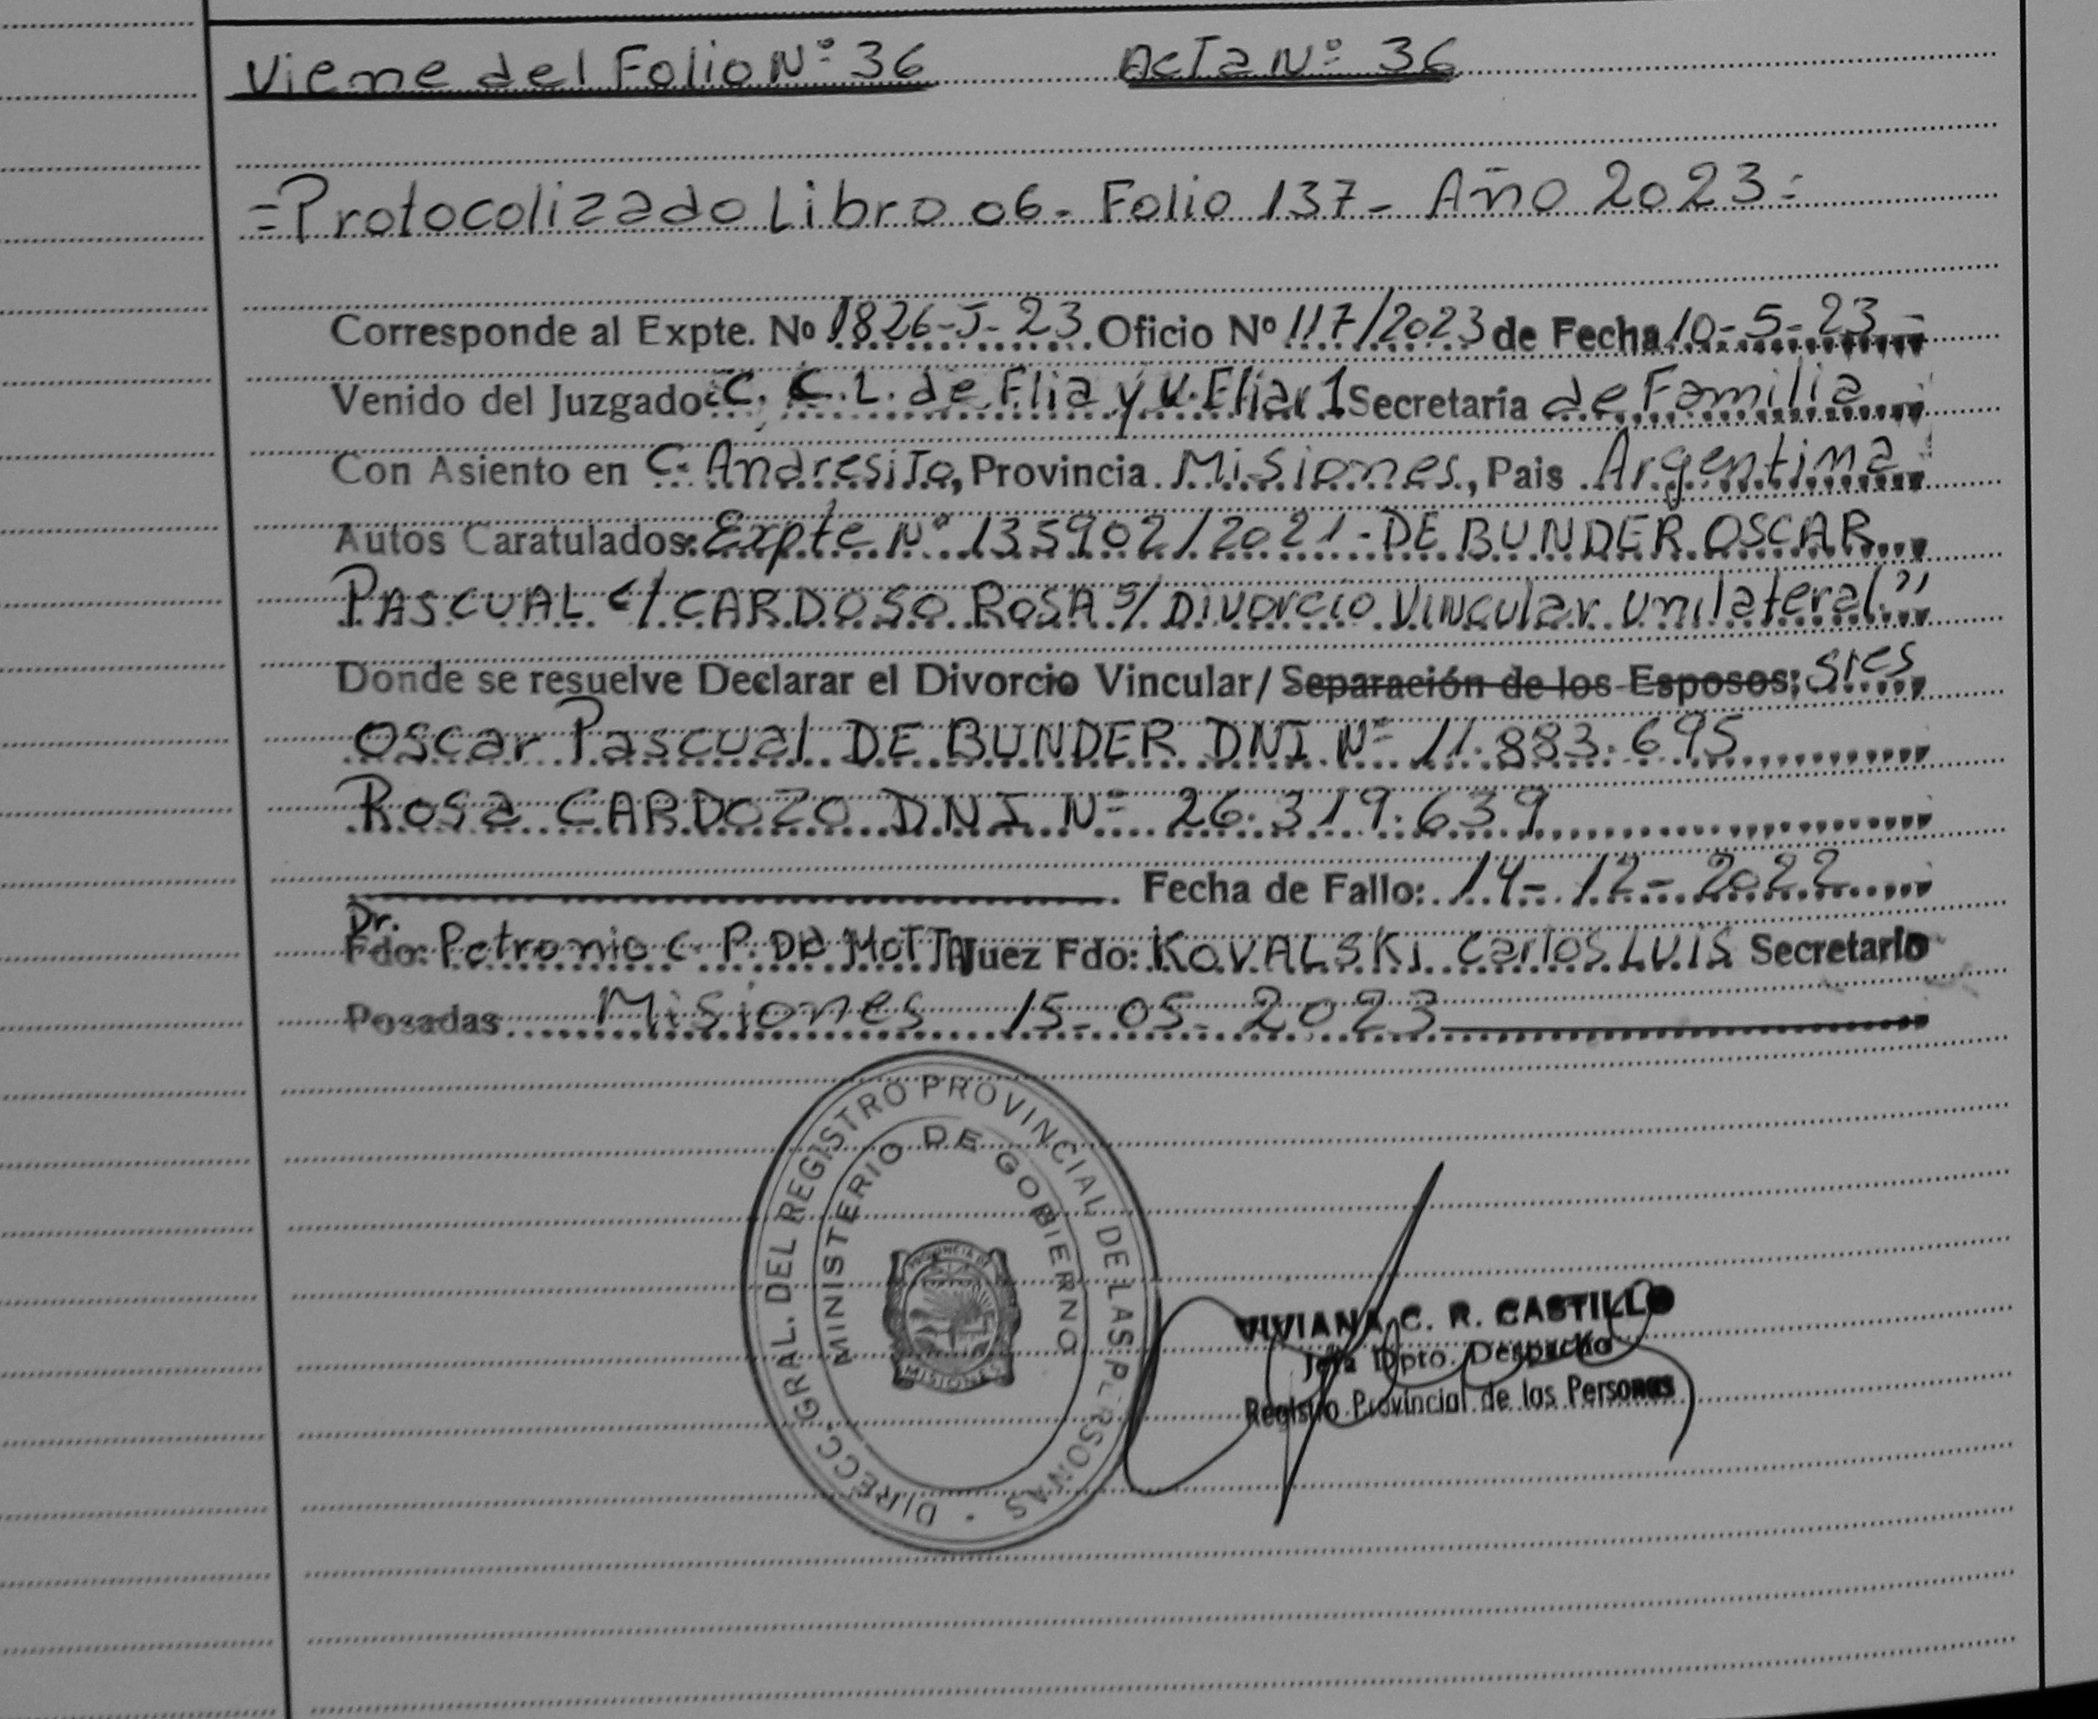 Viene del Folio Nº 36 Acta Nº 36
=Protocolizado Libro 06- Folio 137- Año 2023=
Corresponde al Expte. Nº 1826-J-23 Oficio Nº 117/2023 de Fecha 10-5-23-
Venido del Juzgado: C. C. L. de Flia y V. Fliar 1 Secretaría de Familia
Con Asiento en C. Andresito, Provincia Misiones, Pais Argentina
Autos Caratulados: Expte Nº 135902/2021-DE BUNDER OSCAR
PASCUAL c/ CARDOSO ROSA s/ Divorcio Vincular Unilateral."
Donde se resuelve Declarar el Divorcio Vincular/ Separación de los Esposos; Sres
Oscar Pascual DE BUNDER DNI Nº 11.883.695
Rosa CARDOZO DNI Nº 26.319.639
Fecha de Fallo: 14-12-2022
Dr.
Fdo: Petronio C. P. DE MOTTA Juez Fdo: KOVALSKI Carlos LUIS Secretario
Posadas Misiones 15-05-2023
DIRECC. GRAL. DEL REGISTRO PROVINCIAL DE LAS PERSONAS
MINISTERIO DE GOBIERNO
PROVINCIA DE
MISIONES
VIVIANA C. R. CASTILLO
Jefa Dpto. Despacho
Registro Provincial de las Personas